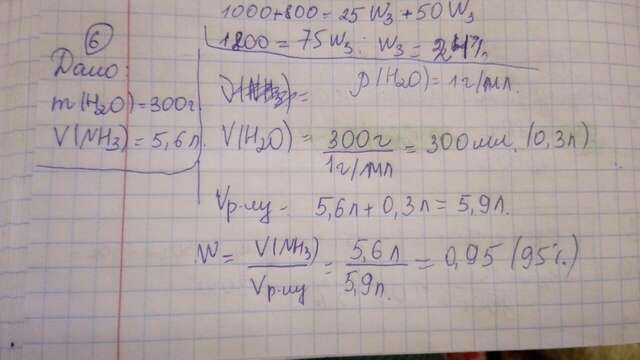 1000+800=25W₃+50W₃
1800=75W₃; W₃=24%
6
Дано:
m(H₂O)=300г
V(NH₃)=5,6л.
ρ(H₂O)=1г/мл.
V(H₂O)=300г/1г/мл=300мл. (0,3л)
Vр-ну= 5,6л+0,3л=5,9л.
W=V(NH₃)/Vр-ну=5,6л/5,9л.=0,95 (95%)